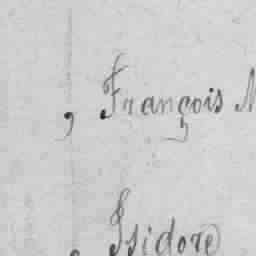 , François
, Isidore